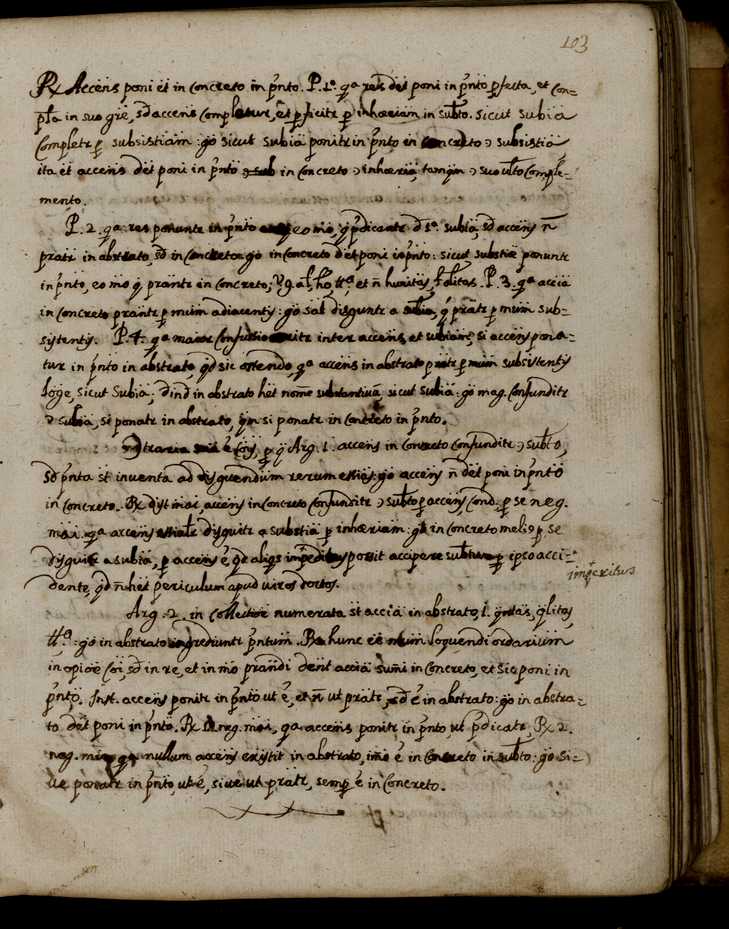 103
Rx Accens poni et in Concreto in p̄nto. P. 1º. qa res det poni in p̄nto p̄fecta, et Con-
pta in suo gre, sd accens Completur, et p̄ficitr p̄ inhœriam in subto. sicut subia
Completr p̄ subsistiam: go sicut subia ponitr in p̄nto in Concreto ɔ subsistia
ita et accens det poni in p̄nto in Concreto ɔ inhœria, tamqm ɔ suo ulto Comple-
mento.
P. 2. qa res ponuntr in p̄nto eo mo, q p̄dicantr d 1ª. subia, sd accens n̄
pratr in abstrato, sd in Concreto: go in Concreto det poni in p̄nto: sicut substiæ ponuntr
in p̄nto, eo mo q prantr in Concreto; et n̄ P. 3. qa accia
in Concreto prantr p̄ mum adiacentis: go sal disguntr a subia, q pratr p̄ mum sub-
sistentis. P. 4. qa maior Confusio inter accens, et subiam, si accens pona-
tur in p̄nto in abstrato, qd sic ostendo, qa accens in abstrato pratr p̄ mum subsistentis
loge, sicut Subia; dind in abstrato het nome substantivū, sicut subia: go mag. Confunditr
ɔ subia, si ponatr in abstrato, qm si ponatr in Concreto in p̄nto.
ɔtraria snia ē p̄ q Arg. 1. accens in Concreto Confunditr ɔ subto,
sd p̄nta st inventa ad disguendum rerum essias: go accens n̄ det poni in p̄nto
in Concreto. Rx dist mai, accens in Concreto Confunditr ɔ subto p̄ accens Cond. p̄ se neg.
mai. qa accens essiale disguitr a substia p̄ inhœriam: go in Concreto melius p̄ se
disguitr a subia, p̄ accens ē qd aliqs impeditus possit accipere subtum p̄ ipso acci-
imperitus
dente, qd n̄ het periculum apud viros doctos.
Arg. 2. in Collectioe numerata st accia in abstrato, s. qntas, qlitas
go in abstrato ingrediuntr p̄ntum. Rx hunc eē mum loquendi ordarium
in opioe Coi, sd in re, et in mo prandi dent accia sumi in Concreto, et sic poni in
p̄nto. Inst. accens ponitr in p̄nto ut ē, et n̄ ut pratr, sd ē in abstrato: go in abstra-
to det poni in p̄nto. Rx 1. neg. mai, qa accens ponitr in p̄nto ut p̄dicatr, Rx 2.
neg. min qa nullum accens existit in abstrato, imo ē in Concreto in subto: go si-
ve ponatr in p̄nto, ut ē, sive ut pratr, semp̄ ē in Concreto.